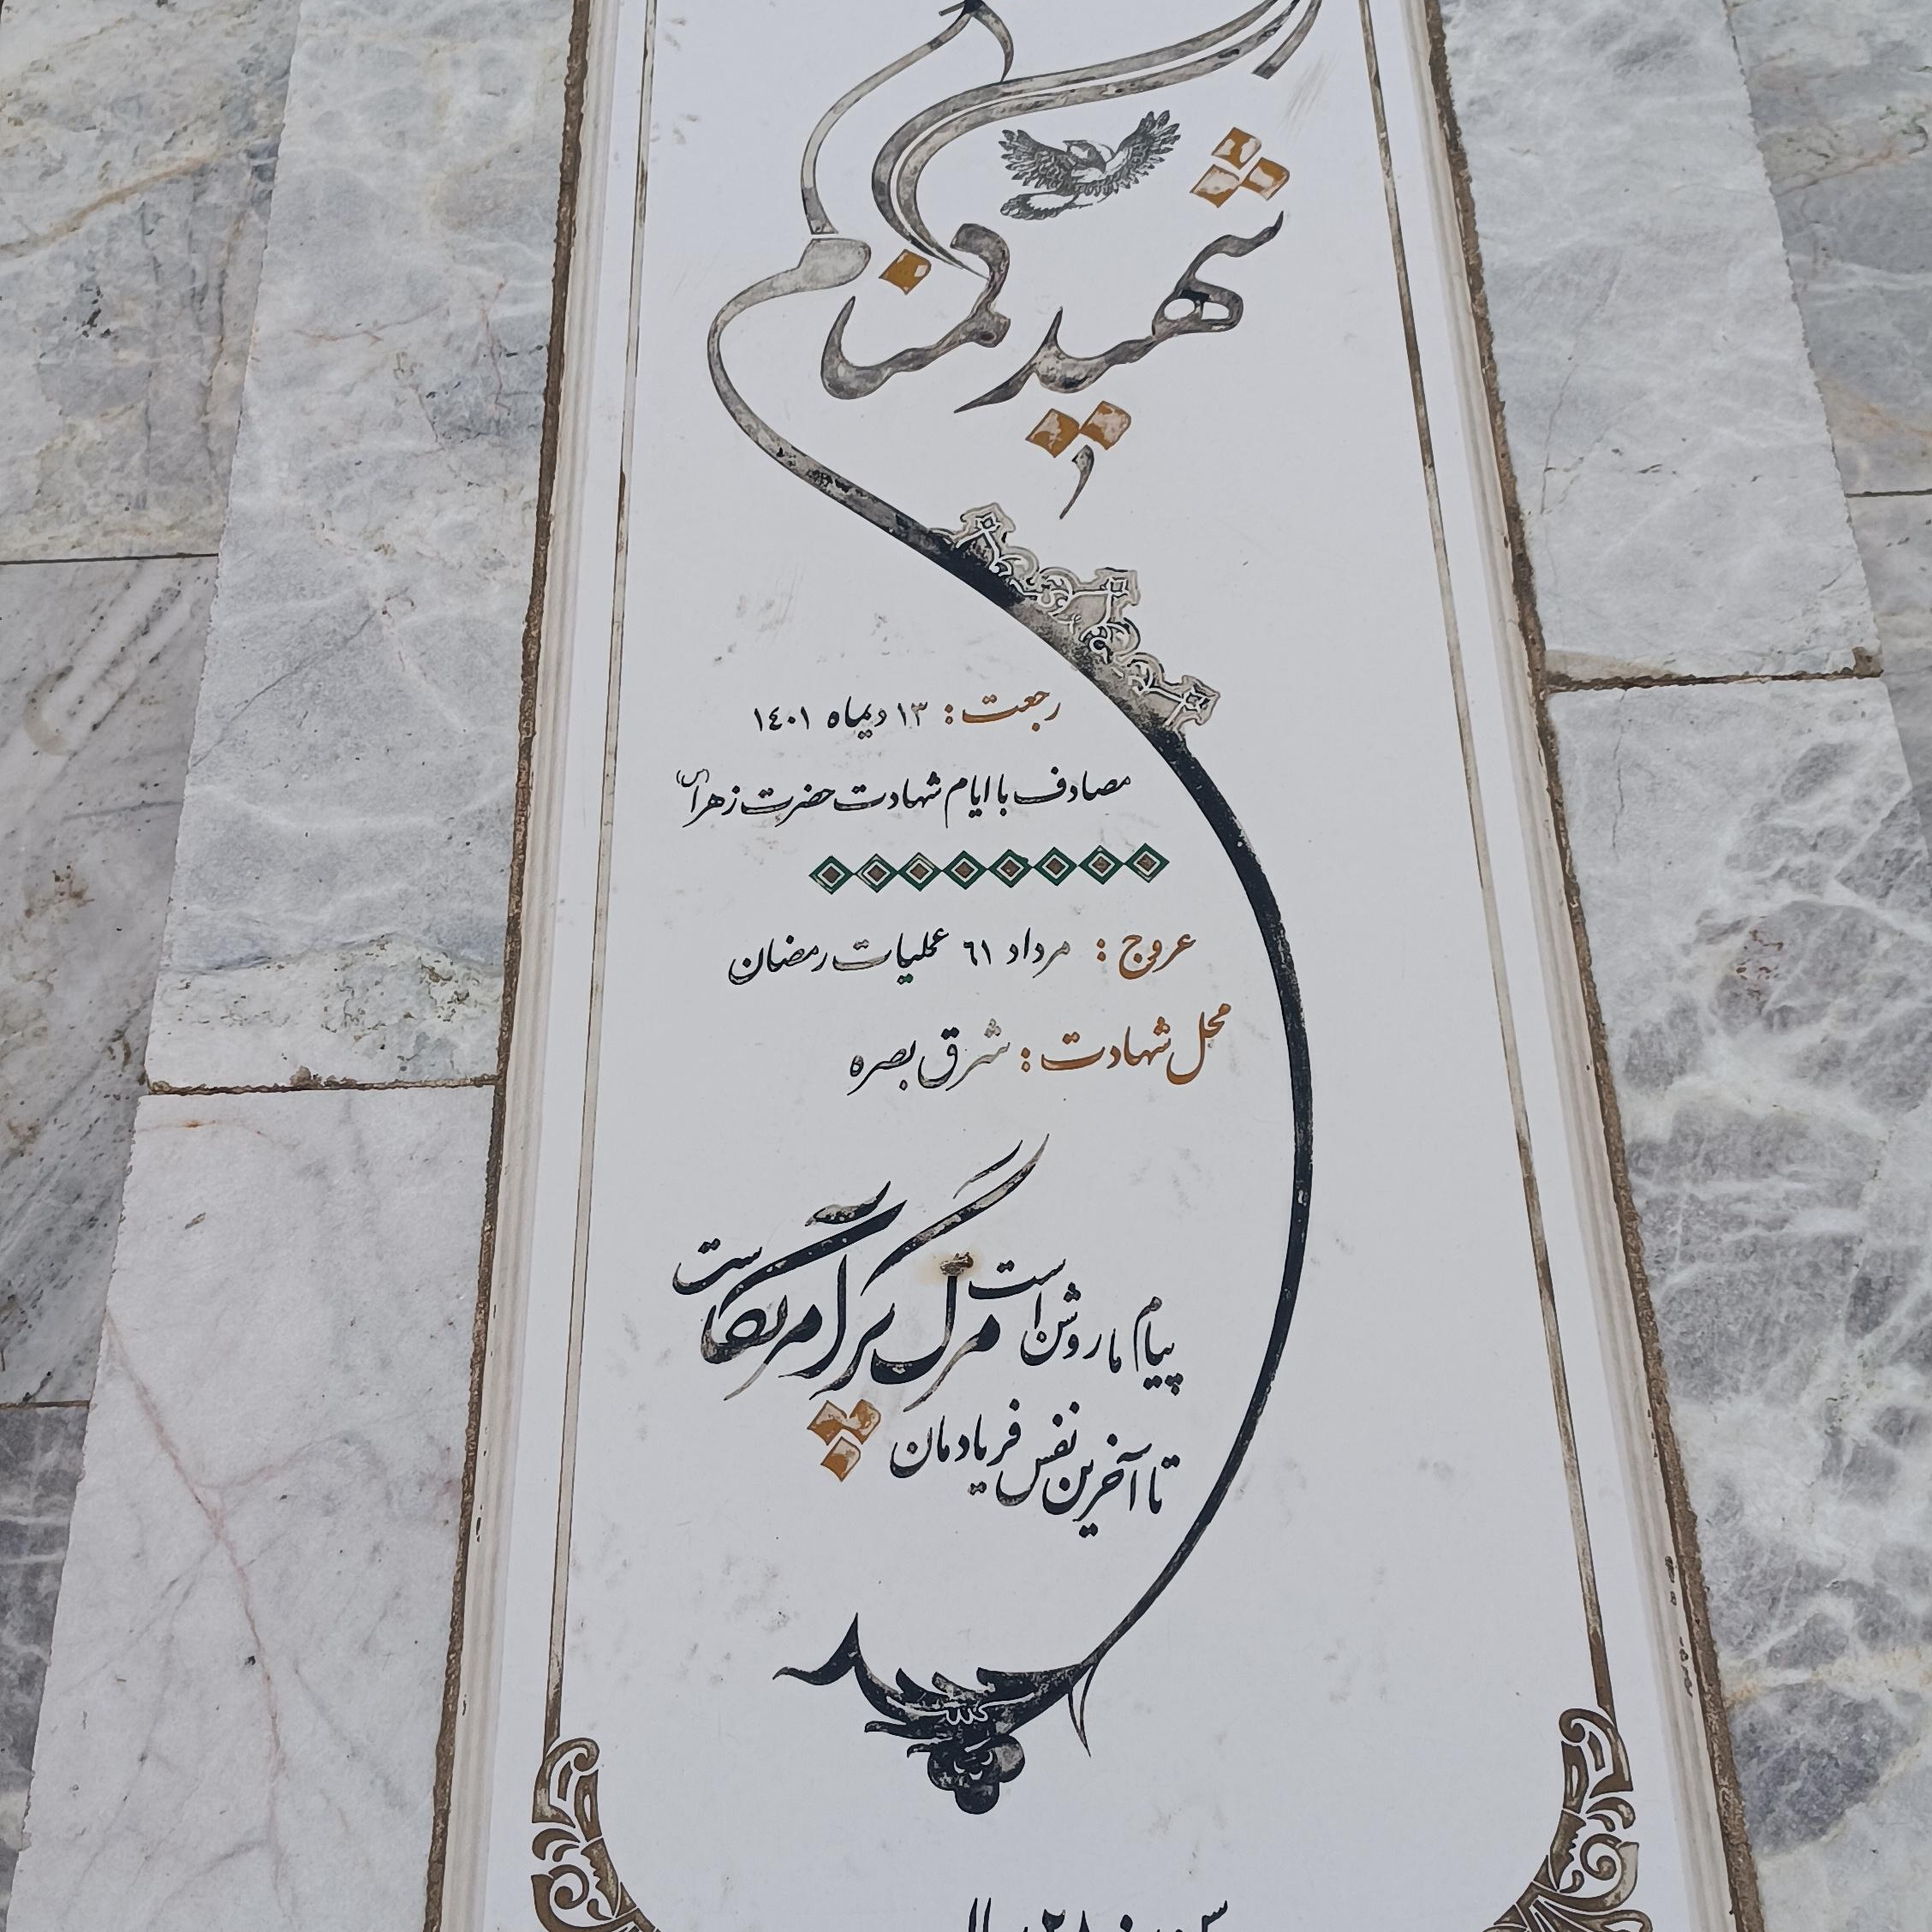 شهید گمنام
رجعت: ۱۳ دیماه ۱٤۰۱
مصادف با ایام شهادت حضرت زهرا(س)
عروج: مرداد ٦۱ عملیات رمضان
محل شهادت: شرق بصره
پیام ما روشن است مرگ بر آمریکاست
تا آخرین نفس فریادمان